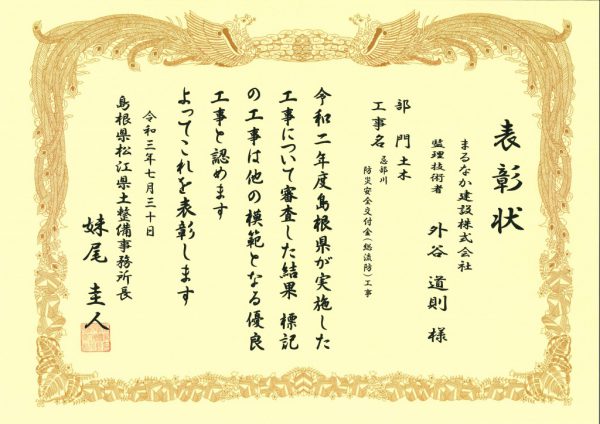 表彰状
まるなか建設株式会社
監理技術者 外谷 道則 様
部門 土木
工事名 忌部川
防災安全交付金(総流防)工事
令和二年度島根県が実施した
工事について審査した結果 標記
の工事は他の模範となる優良
工事と認めます
よってこれを表彰します
令和三年七月三十日
島根県松江県土整備事務所長
妹尾 圭人